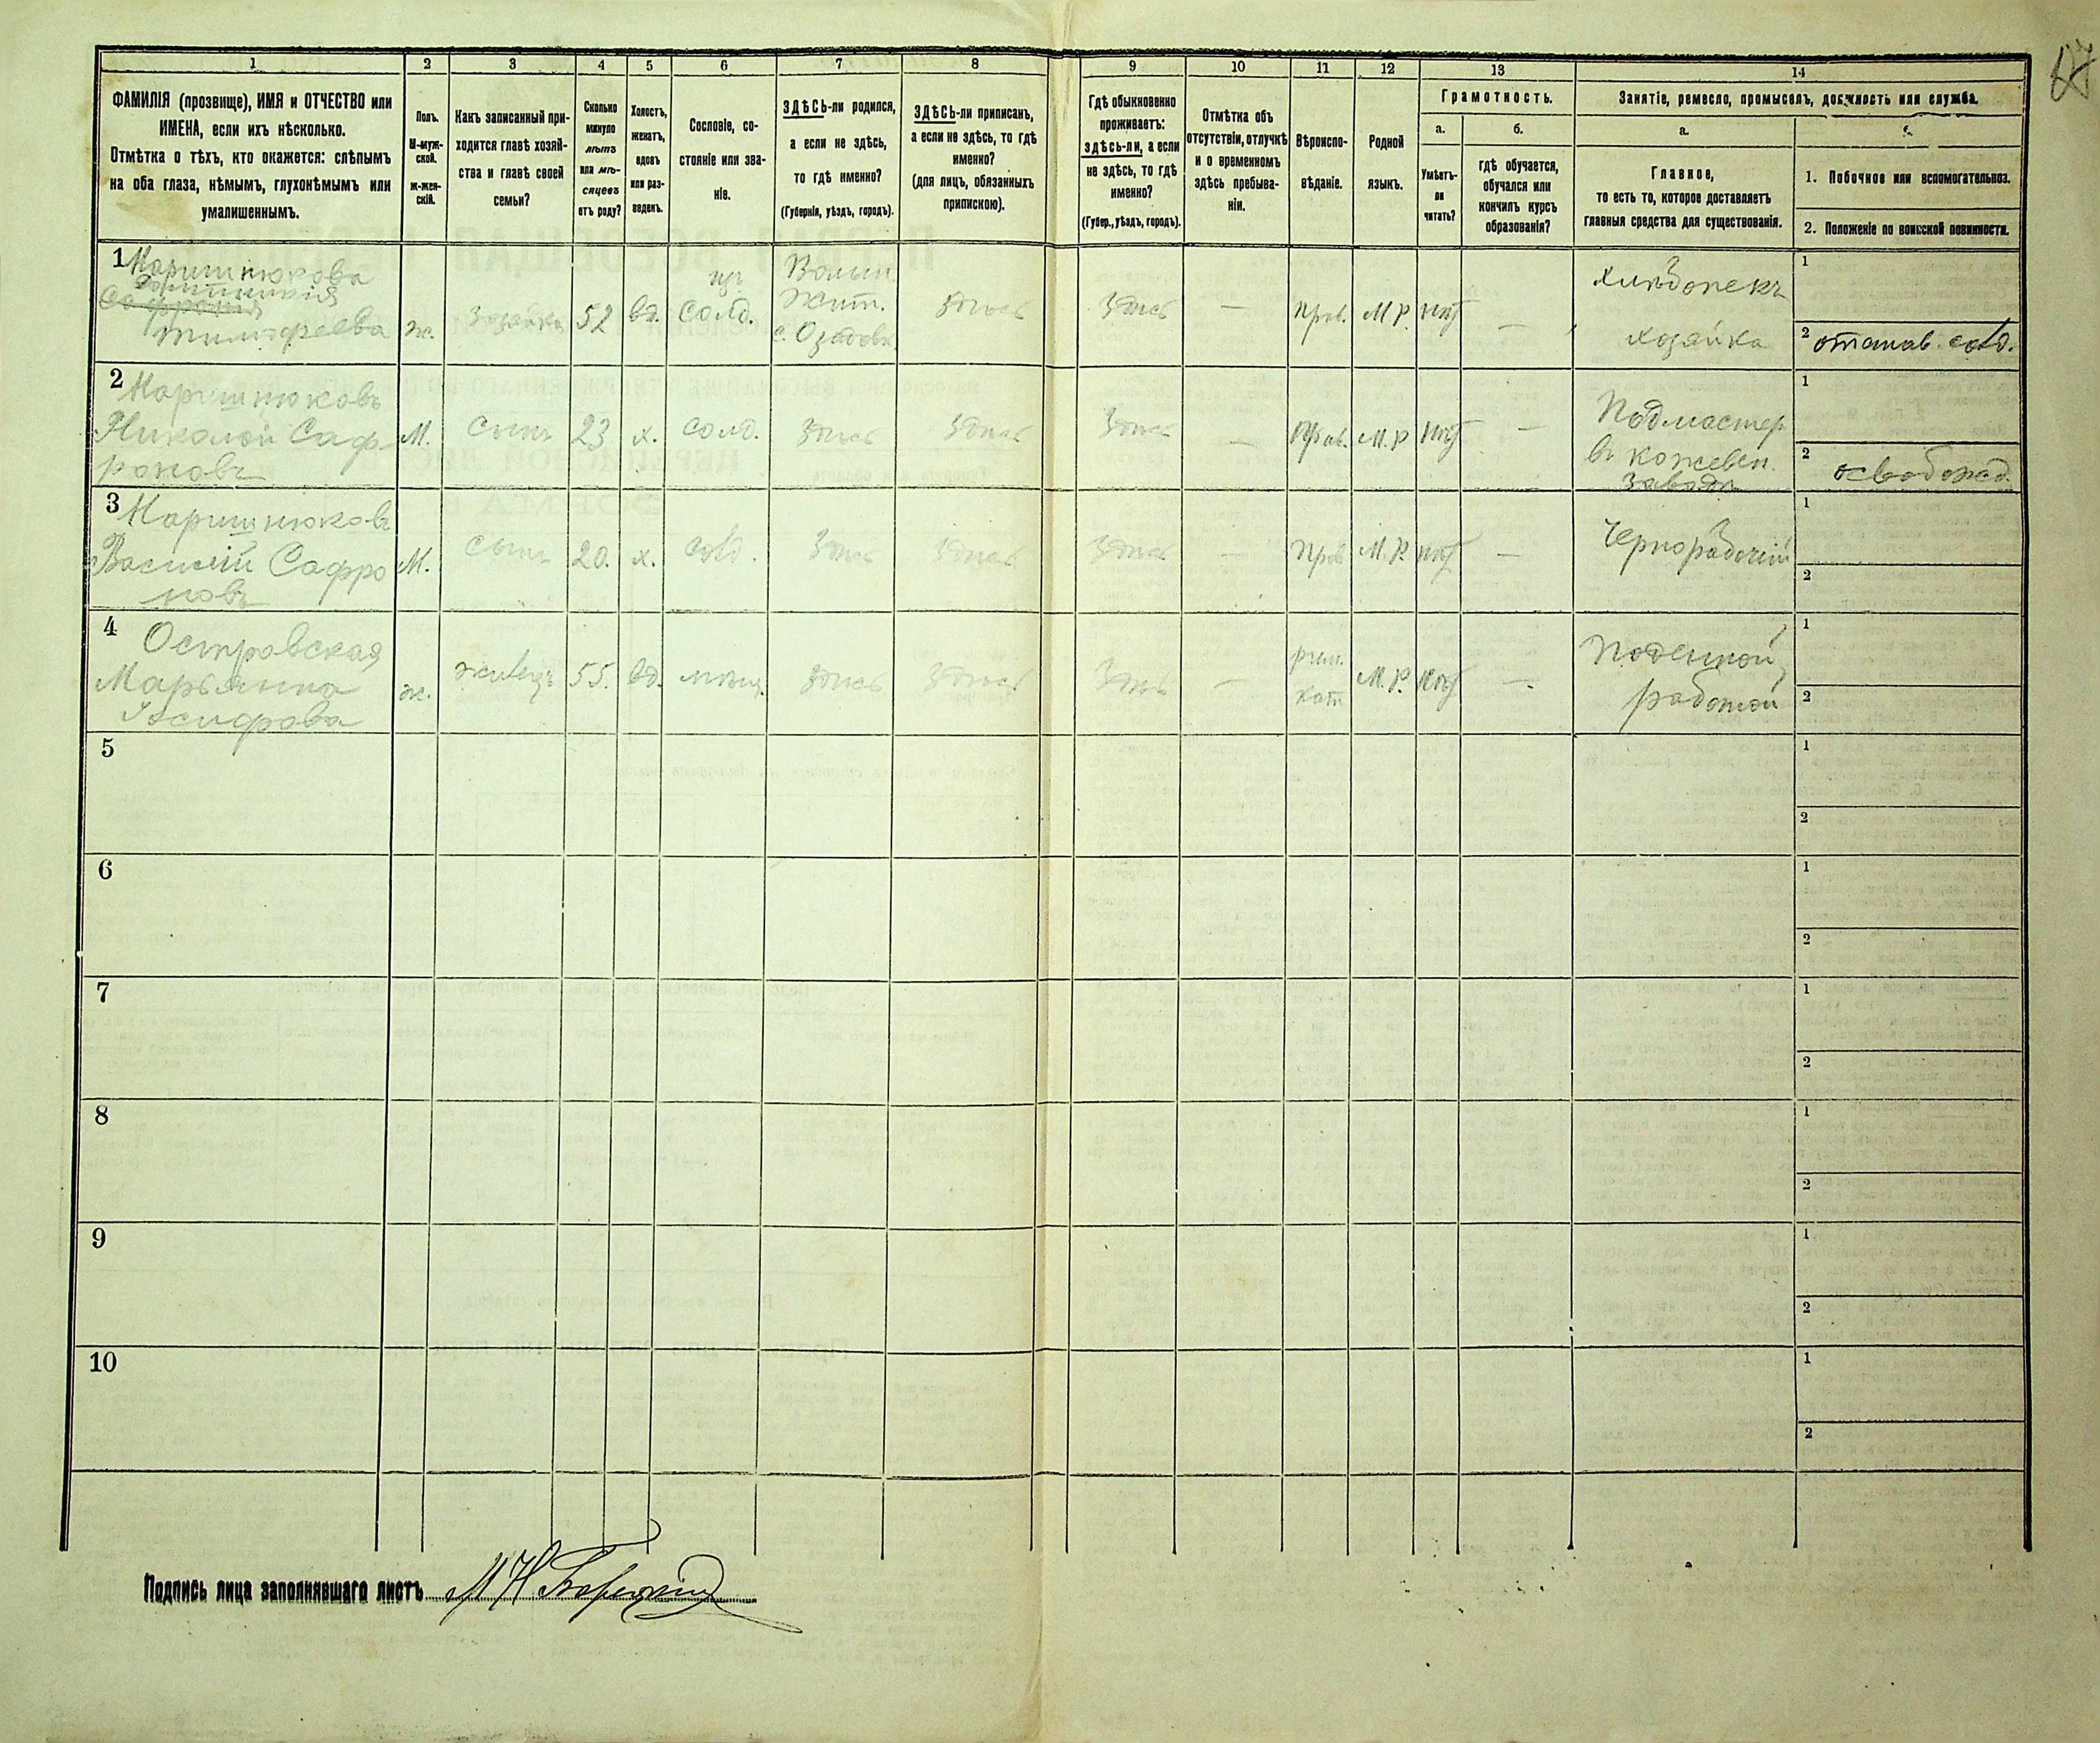 1 2 3 4 5 6 7 8 9 10 11 12 13 14
ФАМИЛІЯ (прозвище), ИМЯ и ОТЧЕСТВО или
ИМЕНА, если ихъ нѣсколько.
Отмѣтка о тѣхъ, кто окажется: слѣпымъ
на оба глаза, нѣмымъ, глухонѣмымъ или
умалишеннымъ.
Полъ.
М-муж-
ской.
ж-жен-
скій.
Какъ записанный при-
ходится главѣ хозяй-
ства и главѣ своей
семьи?
Сколько
минуло
лѣтъ
или мѣ-
сяцевъ
отъ роду?
Холостъ,
женатъ,
вдовъ
или раз-
веденъ.
Сословіе, со-
стояніе или зва-
ніе.
ЗДѢСЬ-ли родился,
а если не здѣсь,
то гдѣ именно?
(Губернія, уѣздъ, городъ).
ЗДѢСЬ-ли приписанъ,
а если не здѣсь, то гдѣ
именно?
(для лицъ, обязанныхъ
припискою).
Гдѣ обыкновенно
проживаетъ:
здѣсь-ли, а если
не здѣсь, то гдѣ
именно?
(Губер., уѣздъ, городъ).
Отмѣтка объ
отсутствіи, отлучкѣ
и о временномъ
здѣсь пребыва-
ніи.
Вѣроиспо-
вѣданіе.
Родной
языкъ.
Грамотность.
а.
Умѣетъ-
ли
читать?
б.
гдѣ обучается,
обучался или
кончилъ курсъ
образованія?
Занятіе, ремесло, промыселъ, должность или служба.
а.
Главное,
то есть то, которое доставляетъ
главныя средства для существованія.
1. Побочное или вспомогательноз.
2. Положеніе по воинской повинности.
1
Тимофеева
ж.
52
вд.
солд.
Волын
Жит.
здѣсь
здѣсь
—
прав.
М.Р.
нѣт
—
хлѣбопекъ
хозяйка
1
2
2
Николай Саф
роновъ
М.
сынъ
23
х.
солд.
здѣсь
здѣсь
здѣсь
—
прав.
М.Р
нѣт
—
Подмастер
въ кожевен.
1
2
3
Василій Сафро
новъ
М.
сынъ
20.
х.
солд.
здѣсь
здѣсь
здѣсь
—
прав
М.Р.
нѣт
—
Чернорабочій
1
2
4
Островская
Марьянна
ж.
55.
вд.
мѣщ.
здѣсь
здѣсь
здѣсь
—
рим.
кат
М.Р.
нѣт
—
Поденной
работой
1
2
5
1
2
6
1
2
7
1
2
8
1
2
9
1
2
10
1
2
Подпись лица заполнявшаго листъ